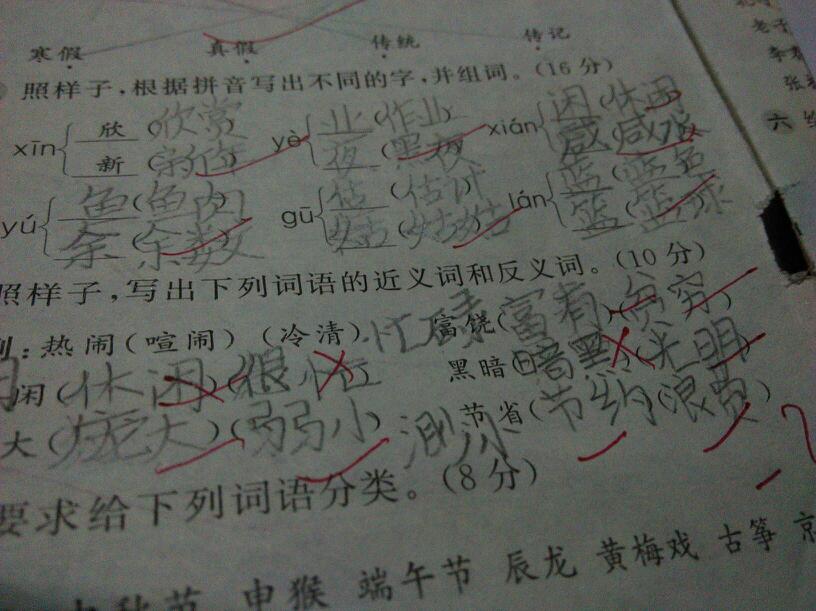 寒假 真假 传统 传记
照样子,根据拼音写出不同的字,并组词。(16分)
xīn 欣(欣赏) yè 业(作业) xián 闲(休闲)
新(新年) 夜(黑夜) 咸(咸淡)
yú 鱼(鱼肉) gū 估(估计) lán 蓝(蓝色)
余(余数) 姑(姑姑) 篮(篮球)
照样子,写出下列词语的近义词和反义词。(10分)
例:热闹(喧闹)(冷清) 忙碌 富饶(富有)(贫穷)
闲(休闲)(很忙) 黑暗(暗黑)(光明)
大(庞大)(弱小) 节省(节约)(浪费)
要求给下列词语分类。(8分)
中秋节 申猴 端午节 辰龙 黄梅戏 古筝 京
老子
李
张
六